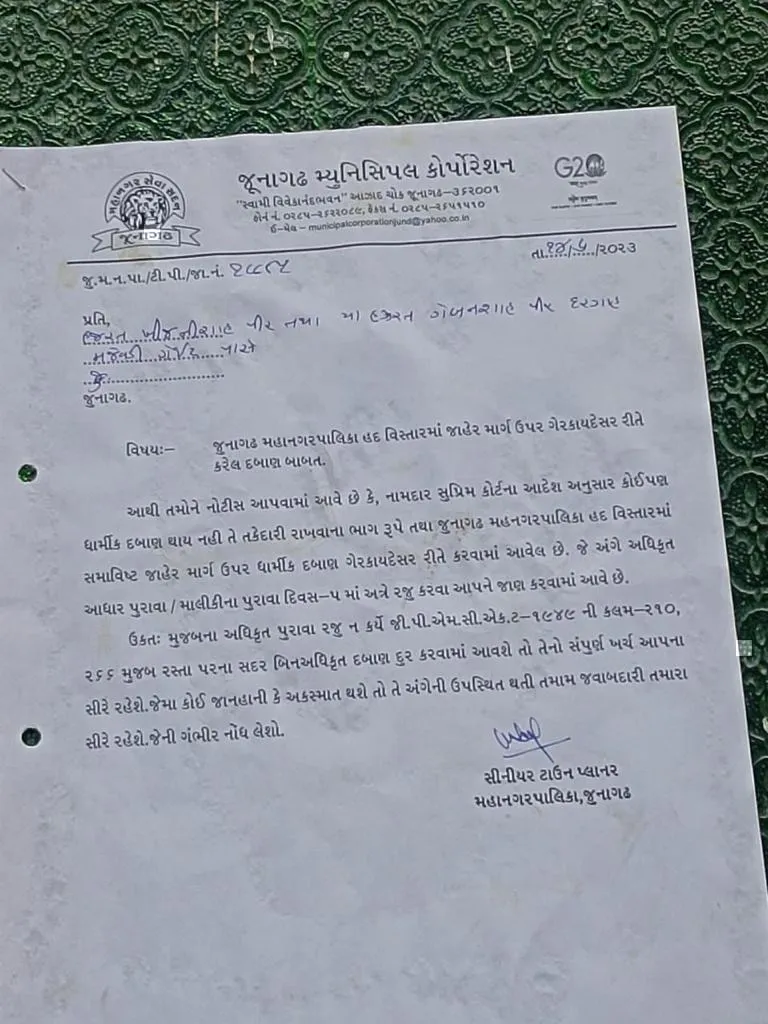 મહાનગર સેવા સદન
જૂનાગઢ
જૂનાગઢ મ્યુનિસિપલ કોર્પોરેશન
"સ્વામી વિવેકાનંદભવન" આઝાદ ચોક જૂનાગઢ–૩૬૨૦૦૧
ફોન નં. ૦૨૮૫–૨૬૨૨૦૮૯, ફેકસ નં. ૦૨૮૫–૨૬૫૧૫૧૦
ઈ-મેલ – municipalcorporationjund@yahoo.co.in
G20
જુ.મ.ન.પા./ટી.પી./જા.નં.
તા. /૨૦૨૩
પ્રતિ,
હજરત પીર તથા માં હઝરત પીર દરગાહ
મજેવડી ગેઈટ પાસે
જુનાગઢ.
વિષયઃ– જુનાગઢ મહાનગરપાલિકા હદ વિસ્તારમાં જાહેર માર્ગ ઉપર ગેરકાયદેસર રીતે
કરેલ દબાણ બાબત.
આથી તમોને નોટીસ આપવામાં આવે છે કે, નામદાર સુપ્રિમ કોર્ટના આદેશ અનુસાર કોઈપણ
ધાર્મીક દબાણ થાય નહી તે તકેદારી રાખવાના ભાગ રૂપે તથા જુનાગઢ મહનગરપાલિકા હદ વિસ્તારમાં
સમાવિષ્ટ જાહેર માર્ગ ઉપર ધાર્મીક દબાણ ગેરકાયદેસર રીતે કરવામાં આવેલ છે. જે અંગે અધિકૃત
આધાર પુરાવા / માલીકીના પુરાવા દિવસ–૫ માં અત્રે રજુ કરવા આપને જાણ કરવામાં આવે છે.
ઉકતઃ મુજબના અધિકૃત પુરાવા રજુ ન કર્યે જી.પી.એમ.સી.એકટ–૧૯૪૯ ની કલમ–૨૧૦,
૨૬૬ મુજબ રસ્તા પરના સદર બિનઅધિકૃત દબાણ દુર કરવામાં આવશે તો તેનો સંપુર્ણ ખર્ચ આપના
સીરે રહેશે.જેમા કોઈ જાનહાની કે અકસ્માત થશે તો તે અંગેની ઉપસ્થિત થતી તમામ જવાબદારી તમારા
સીરે રહેશે.જેની ગંભીર નોંધ લેશો.
સીનીયર ટાઉન પ્લાનર
મહાનગરપાલિકા,જુનાગઢ